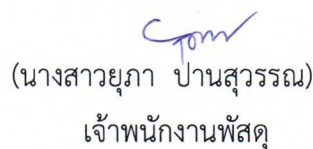 (นางสาวยุภา ปานสุวรรณ)
เจ้าพนักงานพัสดุ